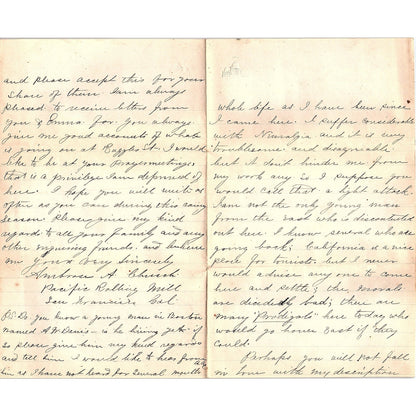 and please accept this for your
share of them I am always
pleased to receive letters from
you & Emma for you always
give me good accounts of what
is going on at Ruggles St. I would
like to be at your Praysmeetings
that is a privilige I am deprived of
here. I hope you will write as
often as you can during this rainy
season. Please give my kind
regards to all your family and any
other enquiring friends. and believe
me Yours Very Sincerely
Ambrose A
Pacific Rolling Mill
San Francisco Cal
PS. Do you know a young man in Boston
named A W Denis- is he living yet? if
so please give him my kind regards
and tell him I would like to hear from
him as I have not heard for several months
whole life as I have seen since
I came here. I suffer considerable
with Neuralgia and it is very
troublesome and disagreeable
but it dont hinder me from
my work any so I suppose you
would call that a light attack.
I am not the only young man
from the east who is discontented
out here I know several who are
going back; California is a nice
place for tourists but I never
would advise any one to come
here and settle; the morals
are decidedly bad; there are
many "Prodigals" here today who
would go home East if they
could.
Perhaps you will not fall
in love with my description